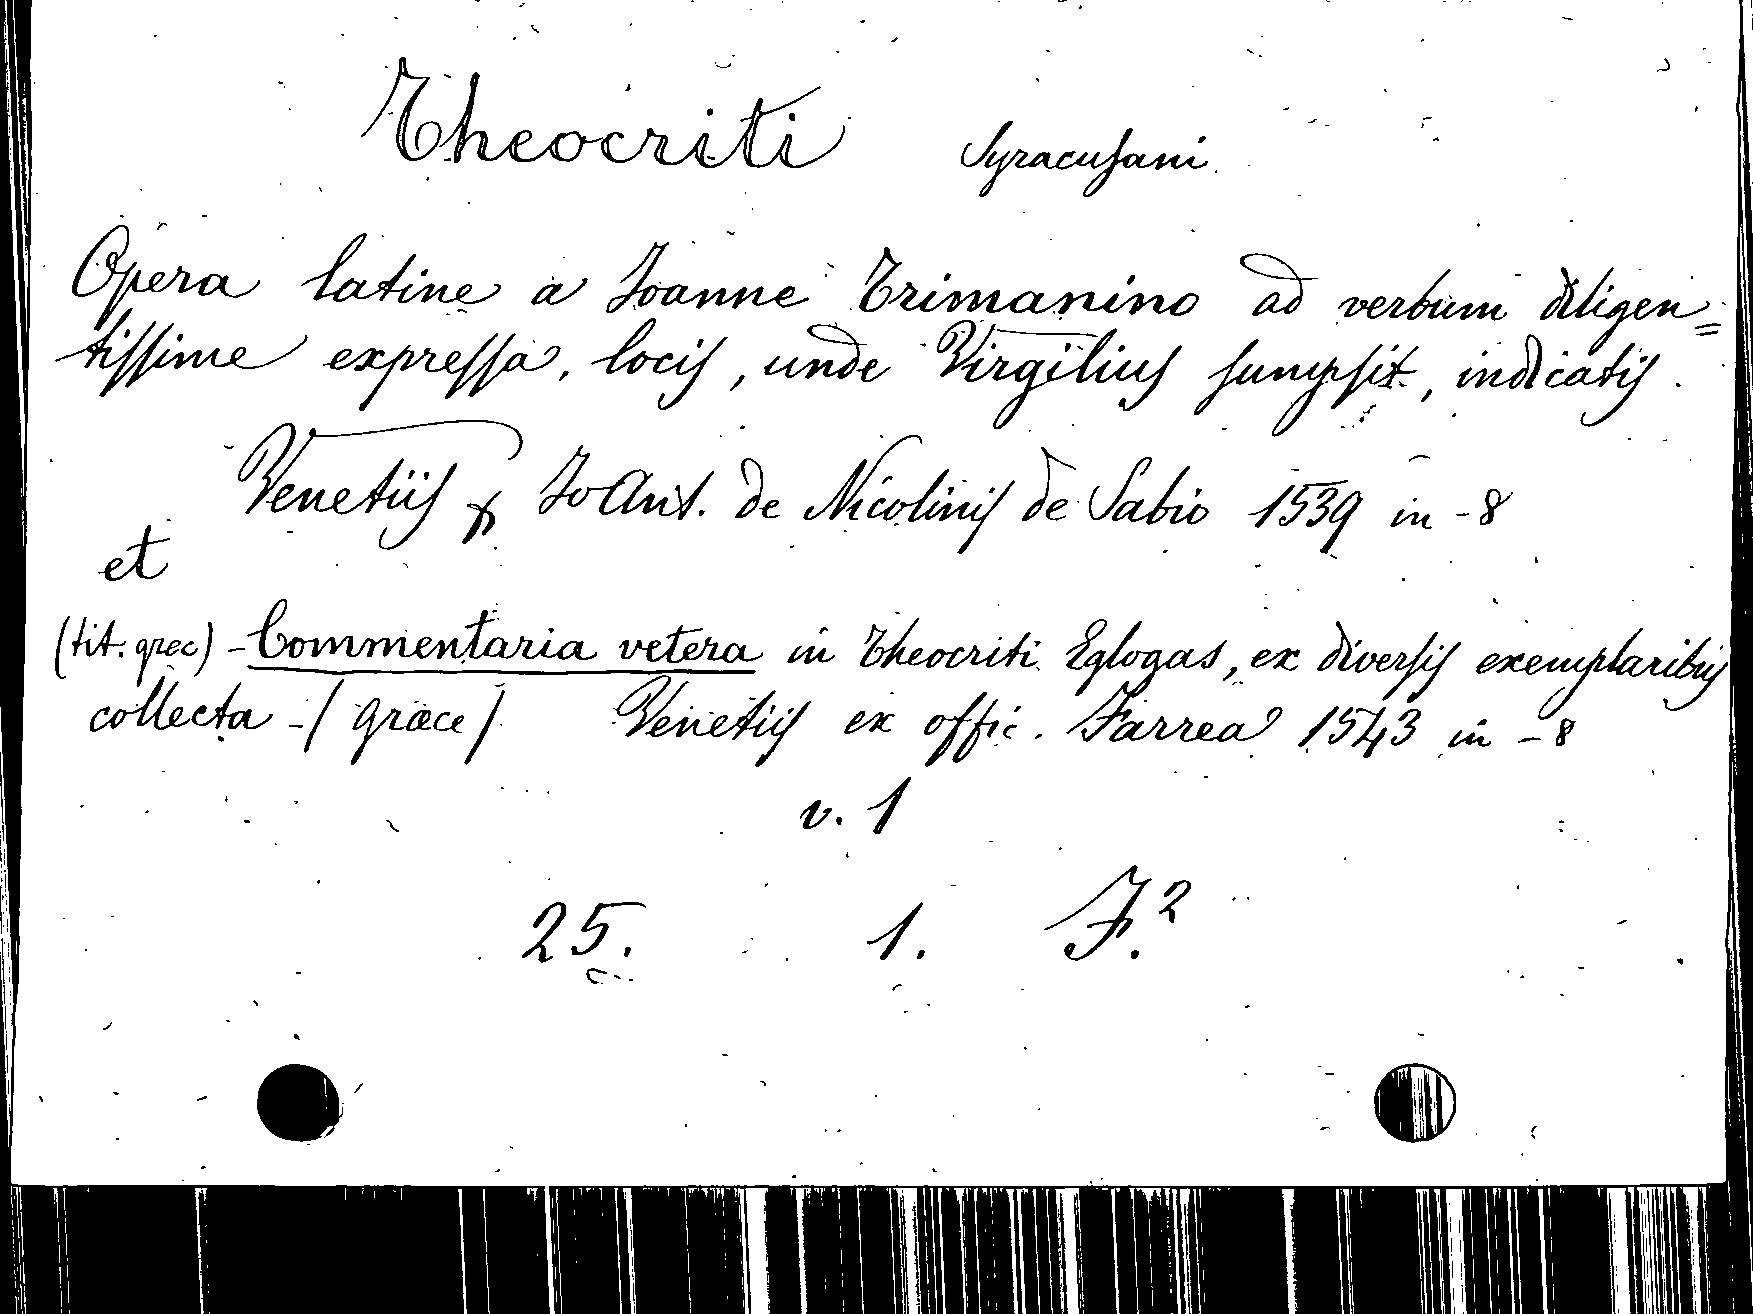 Theocriti Syracusani
Opera latine a Joanne Trimanino ad verbum diligen=
tissime expressa, locis, unde Virgilius sumpsit, indicatis.
Venetiis Jo Ant. de Nicolinis de Sabio 1539 in-8
et
(tit. grec) - Commentaria vetera in Theocriti Eglogas, ex diversis exemplaribus
collecta - (græce) Venetiis ex offic. Farrea 1543 in-8
v. 1
25. 1. F.²